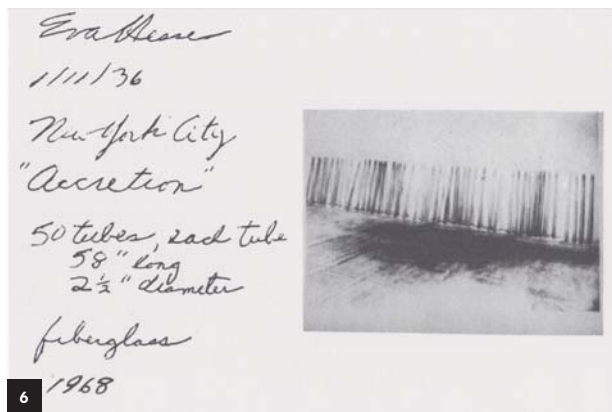 Eva Hesse
1/11/36
New York City
"Accretion"
50 tubes, each tube
58" long
2½" diameter
fiberglass
1968
6